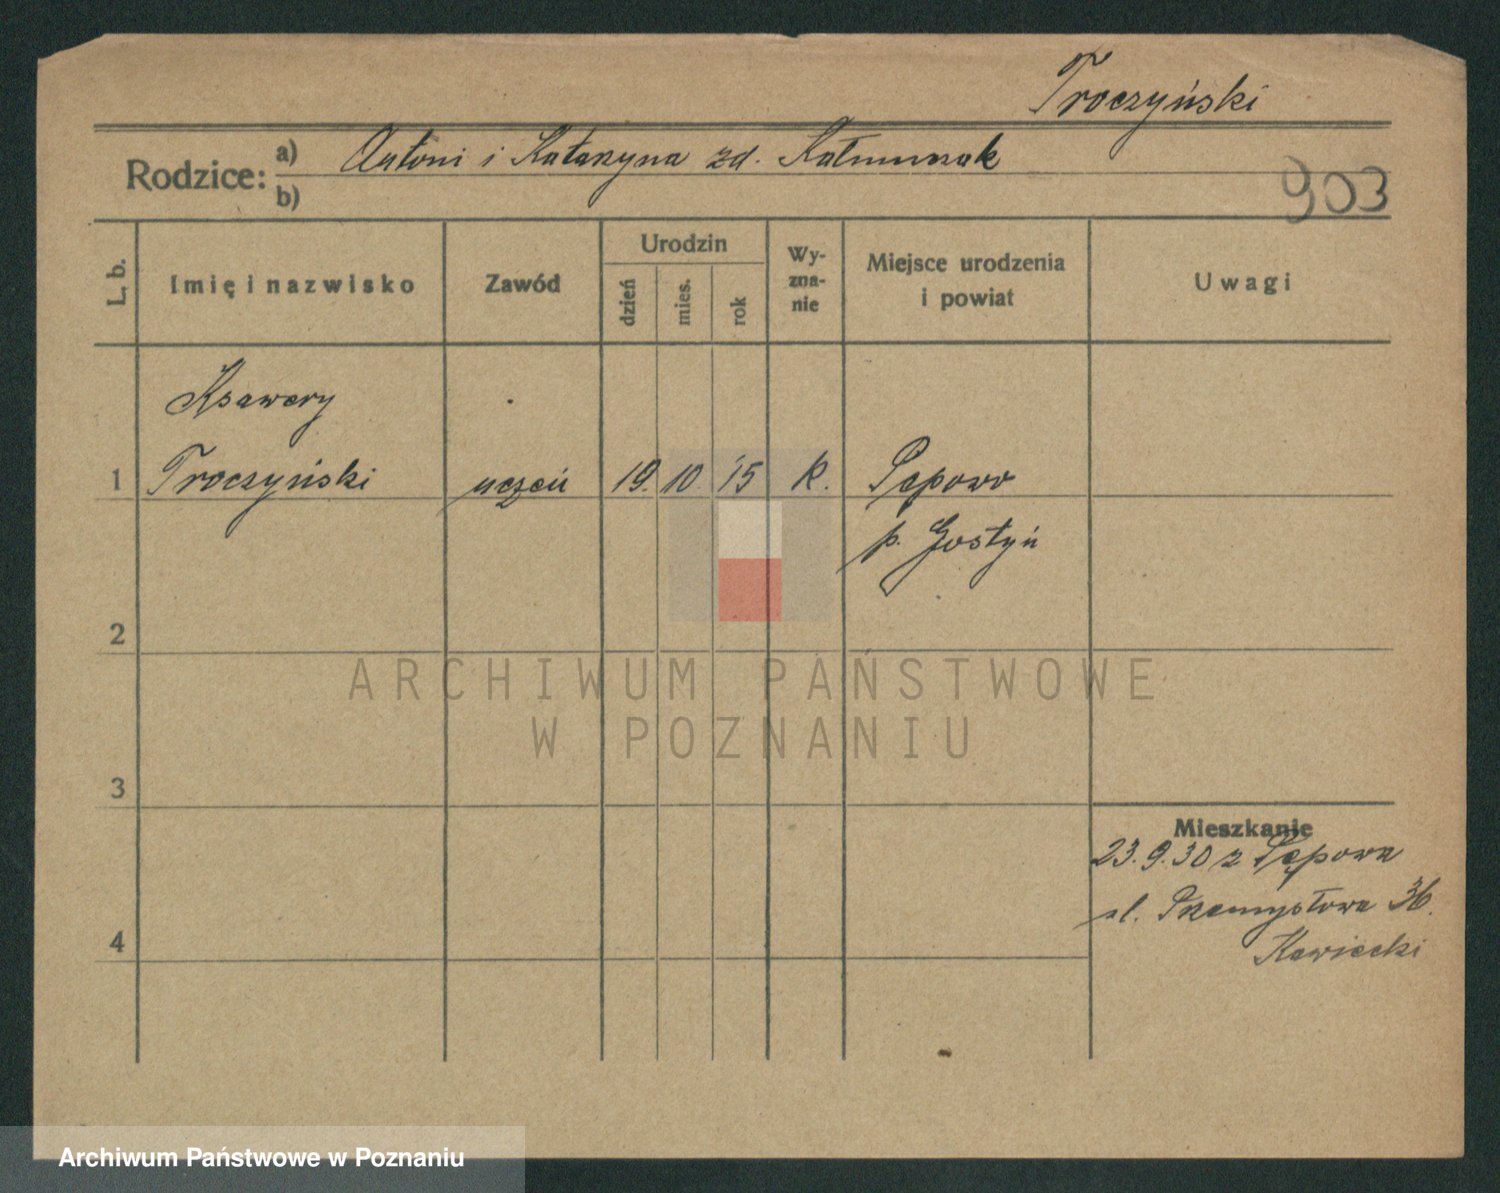 Troczyński
Rodzice:
a) Antoni i Katarzyna zd.
b)
903
L. b.
Imię i nazwisko
Zawód
Urodzin
dzień
mies.
rok
Wy-
zna-
nie
Miejsce urodzenia
i powiat
Uwagi
Ksawery
1 Troczyński uczeń 19. 10. 15 k. Pępowo
p. Gostyń
2
3
4
Mieszkanie
23.9.30 z Pępowa
ul. Przemysłowa 36.
Kawiecki
ARCHIWUM PAŃSTWOWE
W POZNANIU
Archiwum Państwowe w Poznaniu